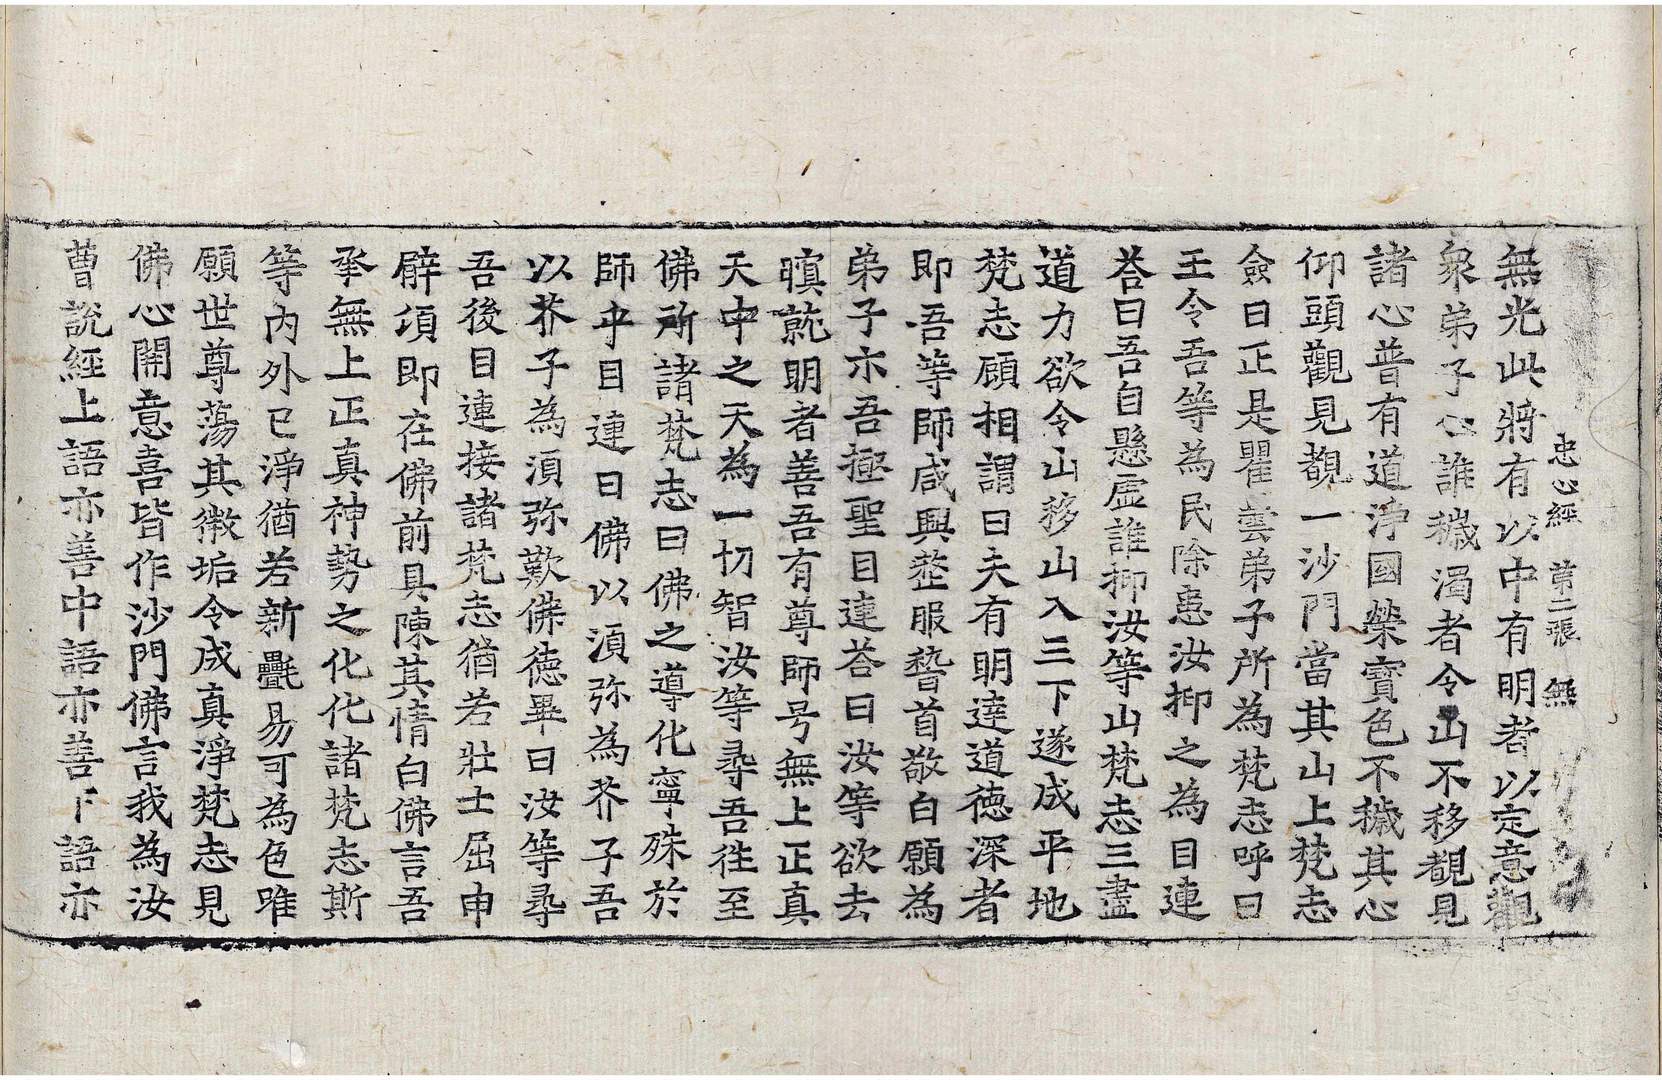 忠心經 第二張 無
無光此將有以中有明者以定意觀
衆弟子心誰穢濁者令山不移覩見
諸心普有道淨國榮寳色不穢其心
仰頭觀見覩一沙門當其山上梵志
僉曰正是瞿曇弟子所為梵志呼曰
王令吾等為民除患汝抑之為目連
荅曰吾自懸虛誰抑汝等山梵志三盡
道力欲令山移山入三下遂成平地
梵志顧相謂曰夫有明達道德深者
即吾等師咸興整服稽首敬白願為
弟子示吾極聖目連荅曰汝等欲去
瞋就明者善吾有尊師号無上正真
天中之天為一切智汝等尋吾往至
佛所諸梵志曰佛之導化寧殊於
師乎目連曰佛以湏弥為芥子吾
以芥子為湏弥歎佛德畢曰汝等尋
吾後目連接諸梵志猶若壯士屈申
臂湏即在佛前具陳其情白佛言吾
承無上正真神勢之化化諸梵志斯
等內外已淨猶若新氎易可為色唯
願世尊蕩其微垢令成真淨梵志見
佛心開意喜皆作沙門佛言我為汝
曹說經上語亦善中語亦善下語亦